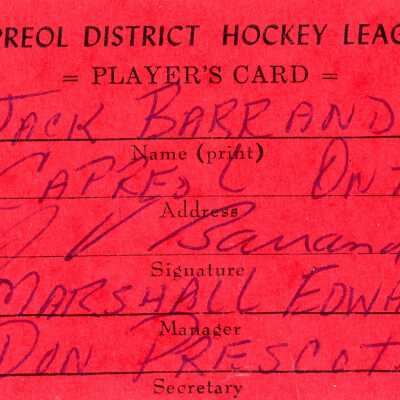 PREOL DISTRICT HOCKEY LEAG
= PLAYER'S CARD =
JACK BARRAND
Name (print)
CAPREOL ONT
Address
J V Barrand
Signature
MARSHALL EDWA
Manager
DON PRESCOTT
Secretary